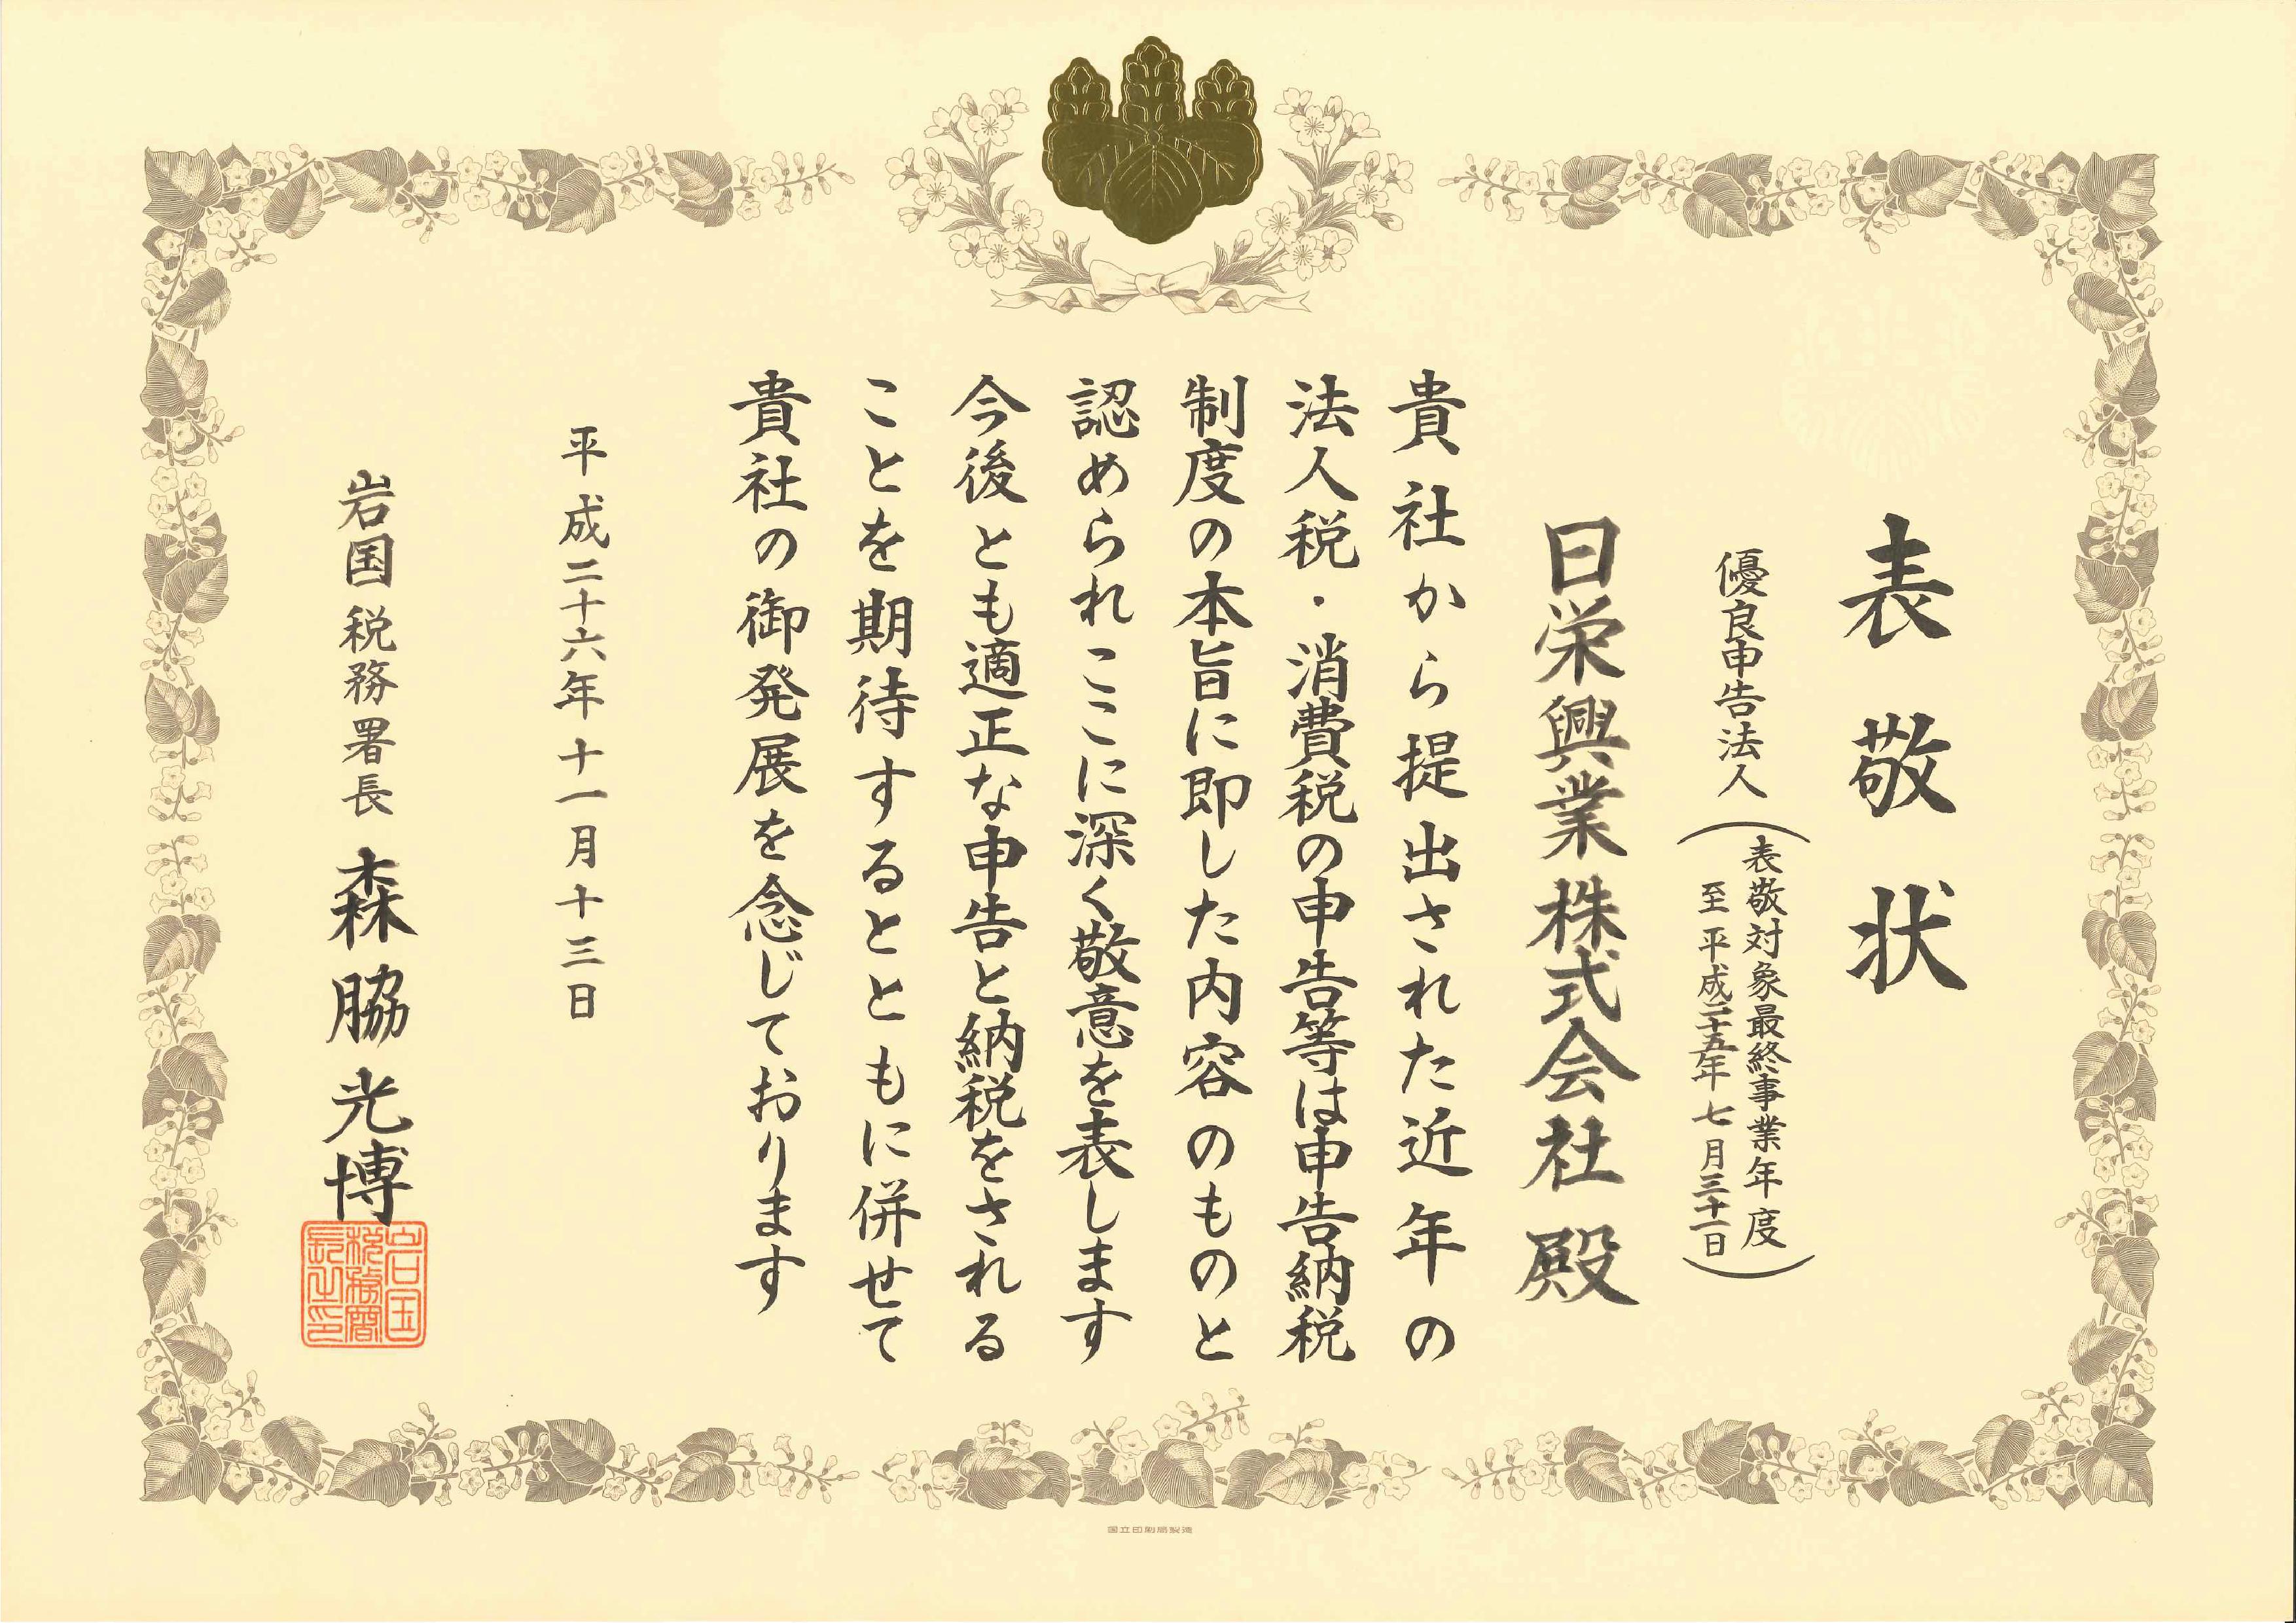 表敬状
優良申告法人
（表敬対象最終事業年度
至平成二十五年七月三十一日）
日栄興業株式会社殿
貴社から提出された近年の
法人税・消費税の申告等は申告納税
制度の本旨に即した内容のものと
認められここに深く敬意を表します
今後とも適正な申告と納税をされる
ことを期待するとともに併せて
貴社の御発展を念じております
平成二十六年十一月十三日
岩国税務署長 森脇光博
岩国
税務署
長之印
国立印刷局製造